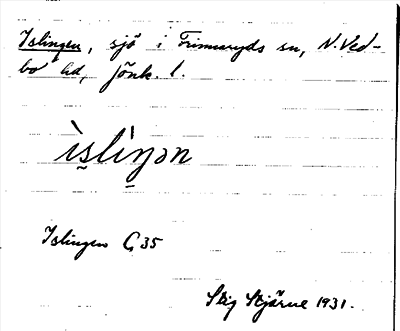 Islingen, sjö i Finnaryds sn, N. Ved-
bo hd, Jönk. l.
ìslìŋən
Islingen G 35
Stig Stjärne 1931.